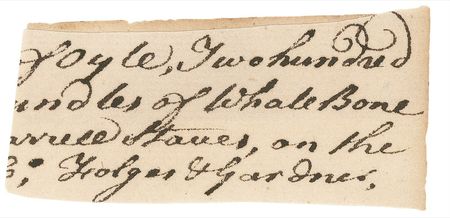 of Oyle, Two hundred
undles of Whale Bone
arrell Staves, on the
Co; Folger & Gardner,